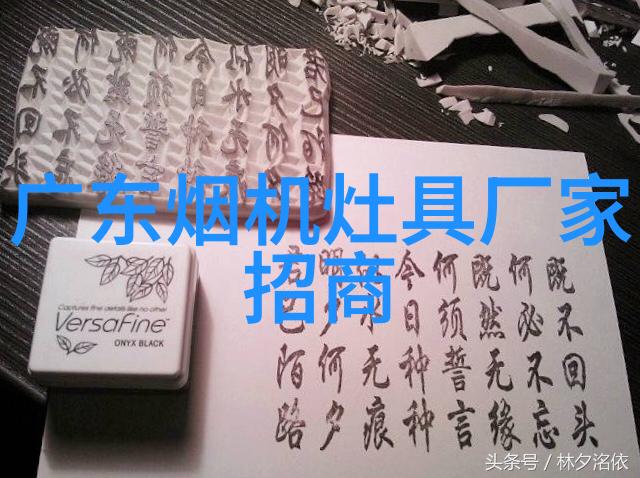 广东烟机灶具厂家
招商
VersaFine
Captures fine details like no other
ONYX BLACK
既不回头
何必不忘
既然无缘
何须誓言
今日种种
似水无痕
明夕何夕
君已陌路
头条号 / 林夕洺依